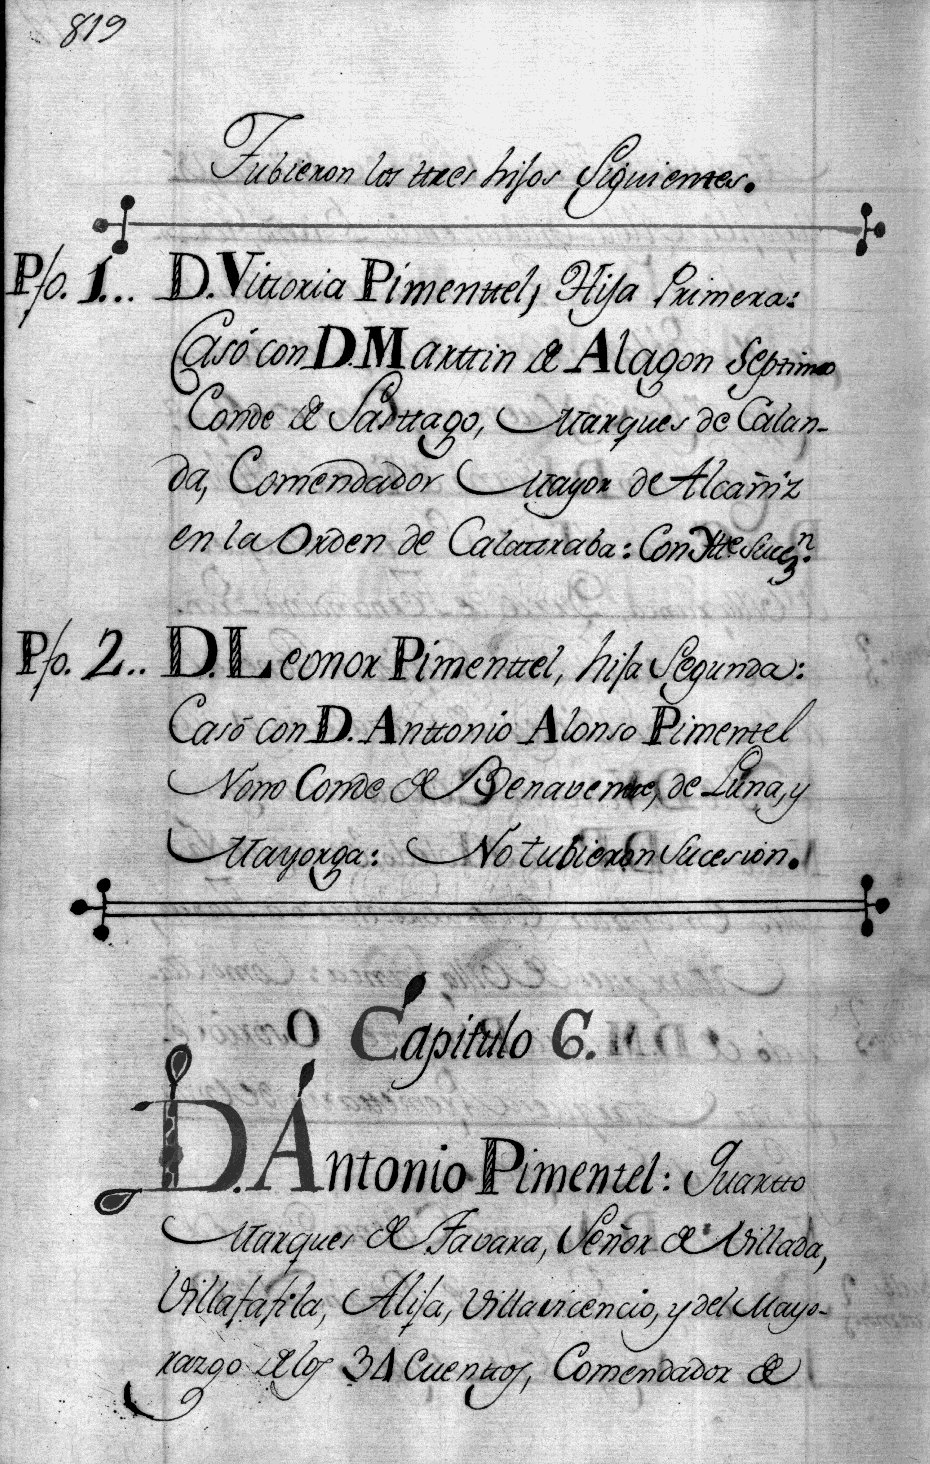 819
Tubieron los ttres hijos Siguientes.
P/o. 1... D. Vittoria Pimenttel, Hija Primera:
Casó con D. Marttin de Alagon Septimo
Conde de Sasttago, Marques de Calan-
da, Comendador Mayor de Alcañiz
en la Orden de Calattraba: Con Ytte Suce.n
P/o. 2.. D. Leonor Pimenttel, hija Segunda:
Casó con D. Anttonio Alonso Pimentel
Nono Conde de Benavente, de Luna, y
Mayorga: No tubieron Sucesion.
Capitulo 6.
D. Antonio Pimentel: Quartto
Marques de Tavara, Señor de Villada,
Villafafila, Alija, Villavicencio, y del Mayo-
razgo de los 34 Cuenttos, Comendador de